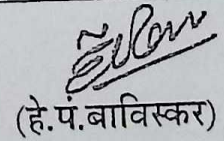 (हे.पं.बाविस्कर)